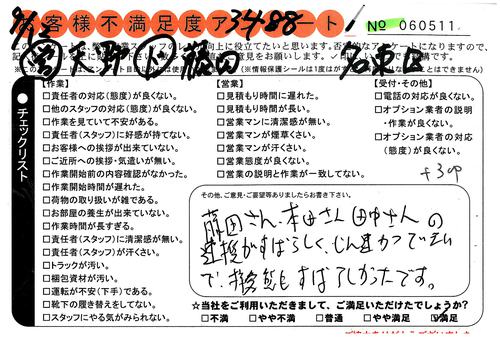 お客様不満足度アンケート
3488
No 060511
9/13
営 天野 作 藤田
名東区
チェックリスト
【作業】
□責任者の対応(態度)が良くない。
□他のスタッフの対応(態度)が良くない。
□作業を見ていて不安がある。
□責任者(スタッフ)に好感が持てない。
□お客様への挨拶が出来ていない。
□ご近所への挨拶・気遣いが無い。
□作業開始前の内容確認がなかった。
□作業開始時間が遅れた。
□荷物の取り扱いが雑である。
□お部屋の養生が出来ていない。
□作業時間が長すぎる。
□責任者(スタッフ)に清潔感が無い。
□責任者(スタッフ)が汗くさい。
□トラックが汚い。
□梱包資材が汚い。
□運転が不安(下手)である。
□靴下の履き替えをしてない。
□スタッフにやる気がみられない。
【営業】
□見積もり時間に遅れた。
□見積もり時間が長い。
□営業マンに清潔感が無い。
□営業マンが煙草くさい。
□営業マンが汗くさい。
□営業態度が良くない。
□営業の説明と作業が一致してない。
【受付・その他】
□電話の対応が良くない。
□オプション業者の説明
・作業が良くない。
□オプション業者の対応
(態度)が良くない。
+30P
その他、ご意見・ご要望等ありましたらお書き下さい。
藤田さん、本田さん 田中さん の
連携がすばらしく、じん速かつていねい
で、挨拶もすばらしかったです。
☆当社をご利用いただきまして、ご満足いただけたでしょうか?
□不満 □やや不満 □普通 □やや満足 ☑満足